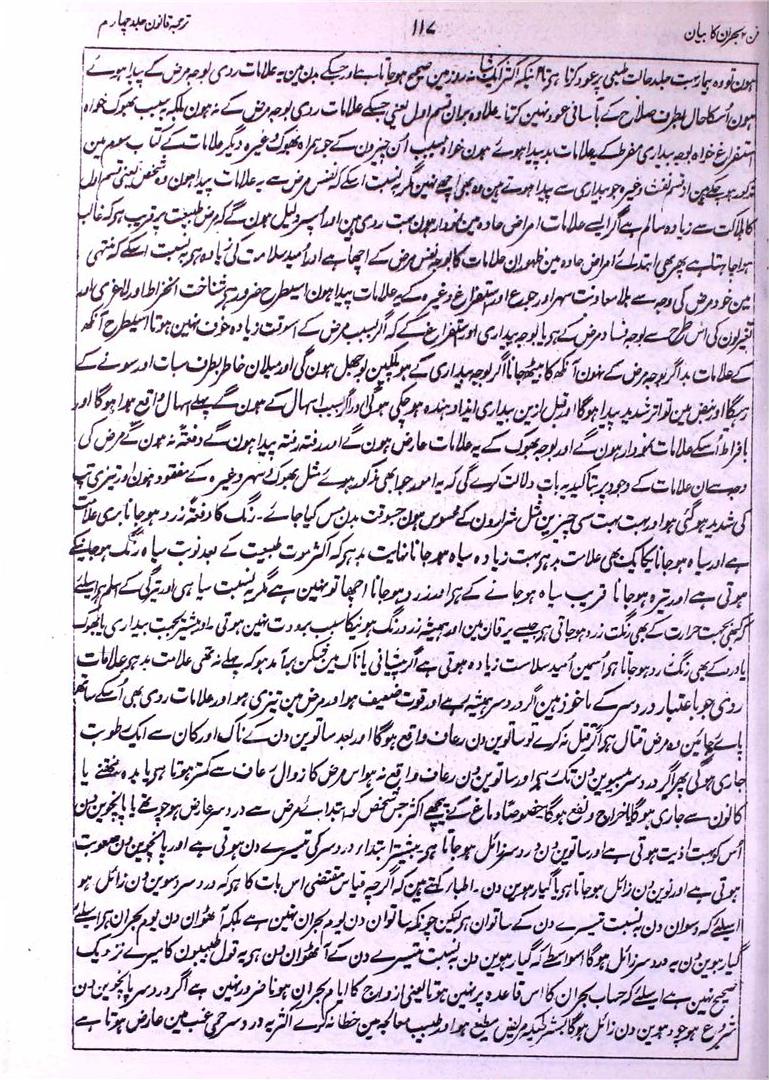 فن ۲ بحران کا بیان
۱۱۷
ترجمہ قانون جلد چہارم
ہون تو وہ بیمار بہت جلد حالت طبیعی پر عود کرتا ہی تا آنکہ اکثر ایک شبانہ روز مین صحیح ہو جاتا ہے اور جسکے بدن مین یہ علامات ردی بوجہ مرض کے پیدا ہوئے
ہون اُسکا حال بطرف صلاح کے بآسانی عود نہین کرتا۔ علاوہ بران قسم اول یعنی جسکے علامات ردی بوجہ مرض کے نہ ہون بلکہ بسبب بھوک خواہ
استفراغ خواہ بوجہ بیداری مفرط کے یہ علامات بد پیدا ہوئے ہون خواہ بسبب اُن چیزون کے جو ہمراہ بھوک وغیرہ دیگر علامات کے کتاب سوم مین
مذکور ہو چکے ہین از قسم نفث وغیرہ جو بیداری سے پیدا ہوتے ہین وہ بھی اچھے نہین مگر بہ نسبت اسکے کہ نفس مرض سے یہ علامات پیدا ہون وہ شخص یعنی قسم اول
کا ہلاکت سے زیادہ سالم ہے اگر ایسے علامات امراض حادہ مین نمودار ہون بہت ردی ہین اور اسپر دلیل ہون گے کہ مرض طبیعت پر قریب ہو کہ غالب
ہوا چاہتا ہے پھر بھی ابتدائے امراض حادہ مین ظہور ان علامات کا بوجہ نفس مرض کے اچھا ہے اور اُمید سلامت کی زیادہ ہو بہ نسبت اسکے کہ منتہی
مین خود مرض کی وجہ سے بلا معاونت سہر اور جوع اور استفراغ وغیرہ کے یہ علامات پیدا ہون اسیطرح ضرور ہے شناخت انخراط اور لاغری اور
تغیر لون کی اس طرح سے بوجہ فساد مرض کے ہو یا بوجہ بیداری اور استفراغ کے کہ اگر بسبب مرض کے اسوقت زیادہ خوف نہین ہوتا اسیطرح آنکھ
کے علامات بد اگر بوجہ مرض کے نہون آنکھ کا بیٹھ جانا اگر بوجہ بیداری کے ہو پلکین بوجھل ہون گی اور میلان خاطر بطرف سبات اور سونے کے
رہیگا اور نبض مین تواتر شدید پیدا ہوگا اور قبل ازین بیداری ایذا دہندہ ہو چکی ہوگی اور اگر بسبب اسہال کے ہون گے پہلے اسہال واقع ہوا ہوگا اور
بافراط اُسکے علامات نمودار ہون گے اور بوجہ بھوک کے یہ علامات عارض ہون گے اور رفتہ رفتہ پیدا ہون گے دفعتہً نہ ہون گے مرض کی
وجہ سے ان علامات کے وجود پر بتاکید یہ بات دلالت کرے گی کہ یہ امور جو ابھی مذکور ہوئے مثل بھوک و سہر وغیرہ کے مفقود ہون اور تیزی تپ
کی شدید ہو گئی ہو اور بہت بہت سی چیزین مثل شرارون کے محسوس ہون جسوقت بدن مس کیا جائے۔ رنگ کا دفعۃً زرد ہو جانا بری علامت
ہے اور سیاہ ہو جانا یکایک بھی علامت بد ہو بہت زیادہ سیاہ ہو جانا نہایت بد ہو کہ اکثر موت طبیعت کے بعد نوبت سیاہ رنگ ہو جانیکی
ہوتی ہے اور تیرہ ہو جانا قریب سیاہ ہو جانے کے ہو اور زرد ہو جانا اچھا تو نہین ہے مگر بہ نسبت سیاہی اور تیرگی کے اسلم ہو اسلیے
کہ کبھی بجہت حرارت کے بھی رنگت زرد ہو جاتی ہو جیسے یرقان مین اور ہمیشہ زرد رنگ ہونیکا سبب برودت نہین ہوتی۔ اور بیشتر بجہت بیداری یا بھوک
یا درد کے بھی رنگ زرد ہو جاتا ہو اُسمین اُمید سلامت زیادہ ہوتی ہے اگر پیشانی یا ناک مین شکن برآمد ہو کہ پہلے نہ تھی علامت بد ہو علامات
ردی جو باعتبار دردسر کے ماخوذ ہین اگر درد سر ہمیشہ رہے اور قوت ضعیف ہو اور مرض مین تیزی ہو اور علامات ردی بھی اُسکے ساتھ
پائے جائین وہ مرض قتال ہو اگر قتل نہ کرے تو ساتوین دن رعاف واقع ہوگا اور بعد ساتوین دن کے ناک اور کان سے ایک رطوبت
جاری ہوگی پھر اگر درد سر بیسوین دن تک رہے اور ساتوین دن رعاف واقع نہ ہو اس مرض کا زوال رعاف سے کمتر ہوتا ہی یا مدہ نتھنے یا
کانون سے جاری ہوگا یا خراج و نفع ہوگا خصوصاً دماغ کے پیچھے اکثر جس شخص کو ابتدائے مرض سے درد سر عارض ہو چوتھے یا پانچوین دن
اُس کو بہت اذیت ہوتی ہے اور ساتوین دن درد سر زائل ہو جاتا ہو بیشتر ابتداء درد سر کی تیسرے دن ہوتی ہے اور پانچوین دن صعوبت
ہوتی ہے اور نوین دن زائل ہو جاتا ہو یا گیارھوین دن۔ اطبا کہتے ہین کہ اگرچہ قیاس مقتضی اس بات کا ہو کہ درد سر دسوین دن زائل ہو
اسلیے کہ دسوان دن بہ نسبت تیسرے دن کے ساتوان ہو لیکن چونکہ ساتوان دن یوم بحران نہین ہے بلکہ آٹھوان دن یوم بحران ہو اسلیے
گیارہوین دن یہ درد سر زائل ہوگا اسواسطے کہ گیارھوین دن بہ نسبت تیسرے دن کے آٹھوان دن ہی یہ قول طبیبون کا میرے نزدیک
صحیح نہین ہے اسلیے کہ حساب بحران کا اس قاعدہ پر نہین ہوتا یعنی ازواج کا ایام بحران ہونا ضرور نہین ہے اگر درد سر پانچوین دن
شروع ہو چودھوین دن زائل ہوگا بشرطیکہ مریض مطیع ہو اور طبیب معالجہ مین خطا نہ کرے اکثر یہ درد سر حمی غب مین عارض ہوتا ہے